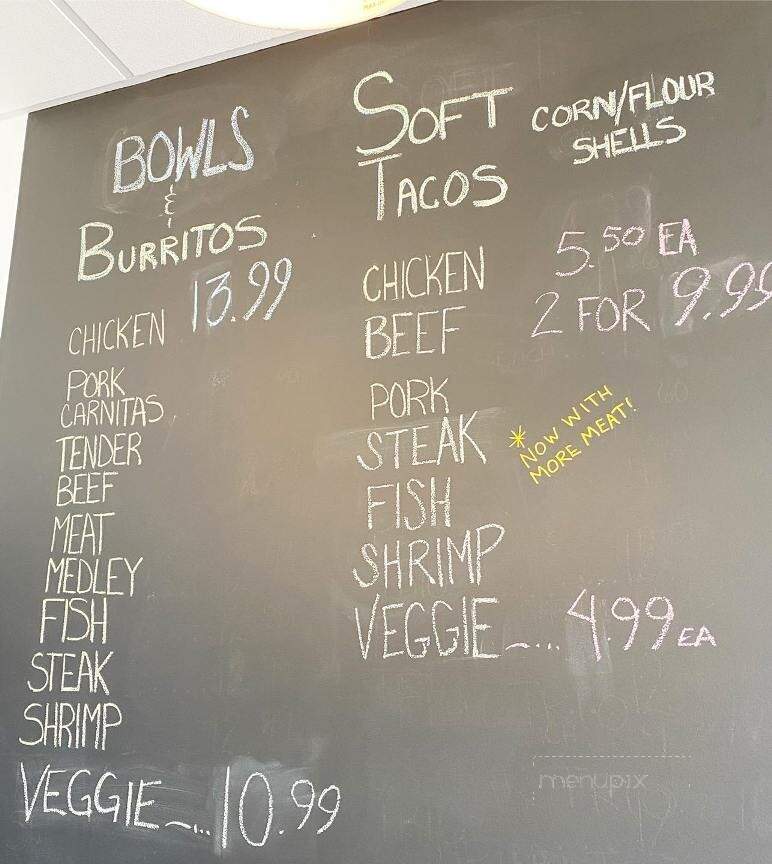 BOWLS
&
BURRITOS
13.99
CHICKEN
PORK
CARNITAS
TENDER
BEEF
MEAT
MEDLEY
FISH
STEAK
SHRIMP
VEGGIE ~... 10.99
SOFT
TACOS
CORN/FLOUR
SHELLS
CHICKEN 5.50 EA
BEEF 2 FOR 9.99
PORK
STEAK
*NOW WITH
MORE MEAT!
FISH
SHRIMP
VEGGIE ~... 4.99 EA
menupix